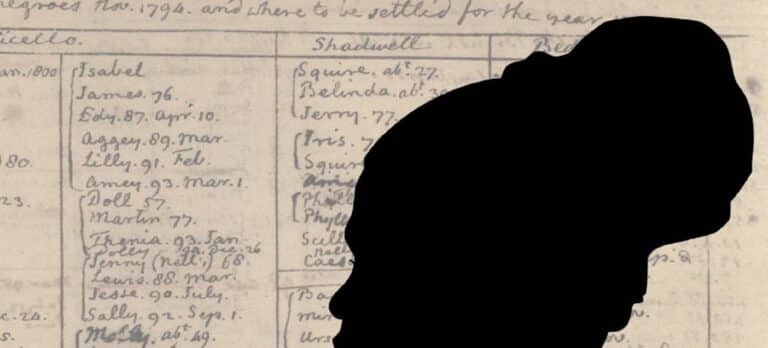 negroes Nov. 1794. and where to be settled for the year
icello.
an. 1800
80.
23.
c. 24.
5.
Isabel
James. 76.
Edy. 87. Apr. 10.
Aggey. 89. Mar.
Lilly. 91. Feb.
Amey. 93. Mar. 1.
Doll 57.
Martin 77.
Thenia. 93. Jan.
Dolly 94. Dec. 26
Jenny (Nell's) 68.
Lewis. 88. Mar.
Jesse. 90. July.
Sally. 92. Sep. 1.
abt. 49.
Shadwell
Squire. abt. 27.
Belinda. abt.
Jerry. 77.
Iris. 7
Squir
Phyll
Scill
Caes
Ba
min
Urs
Bed
p. 2